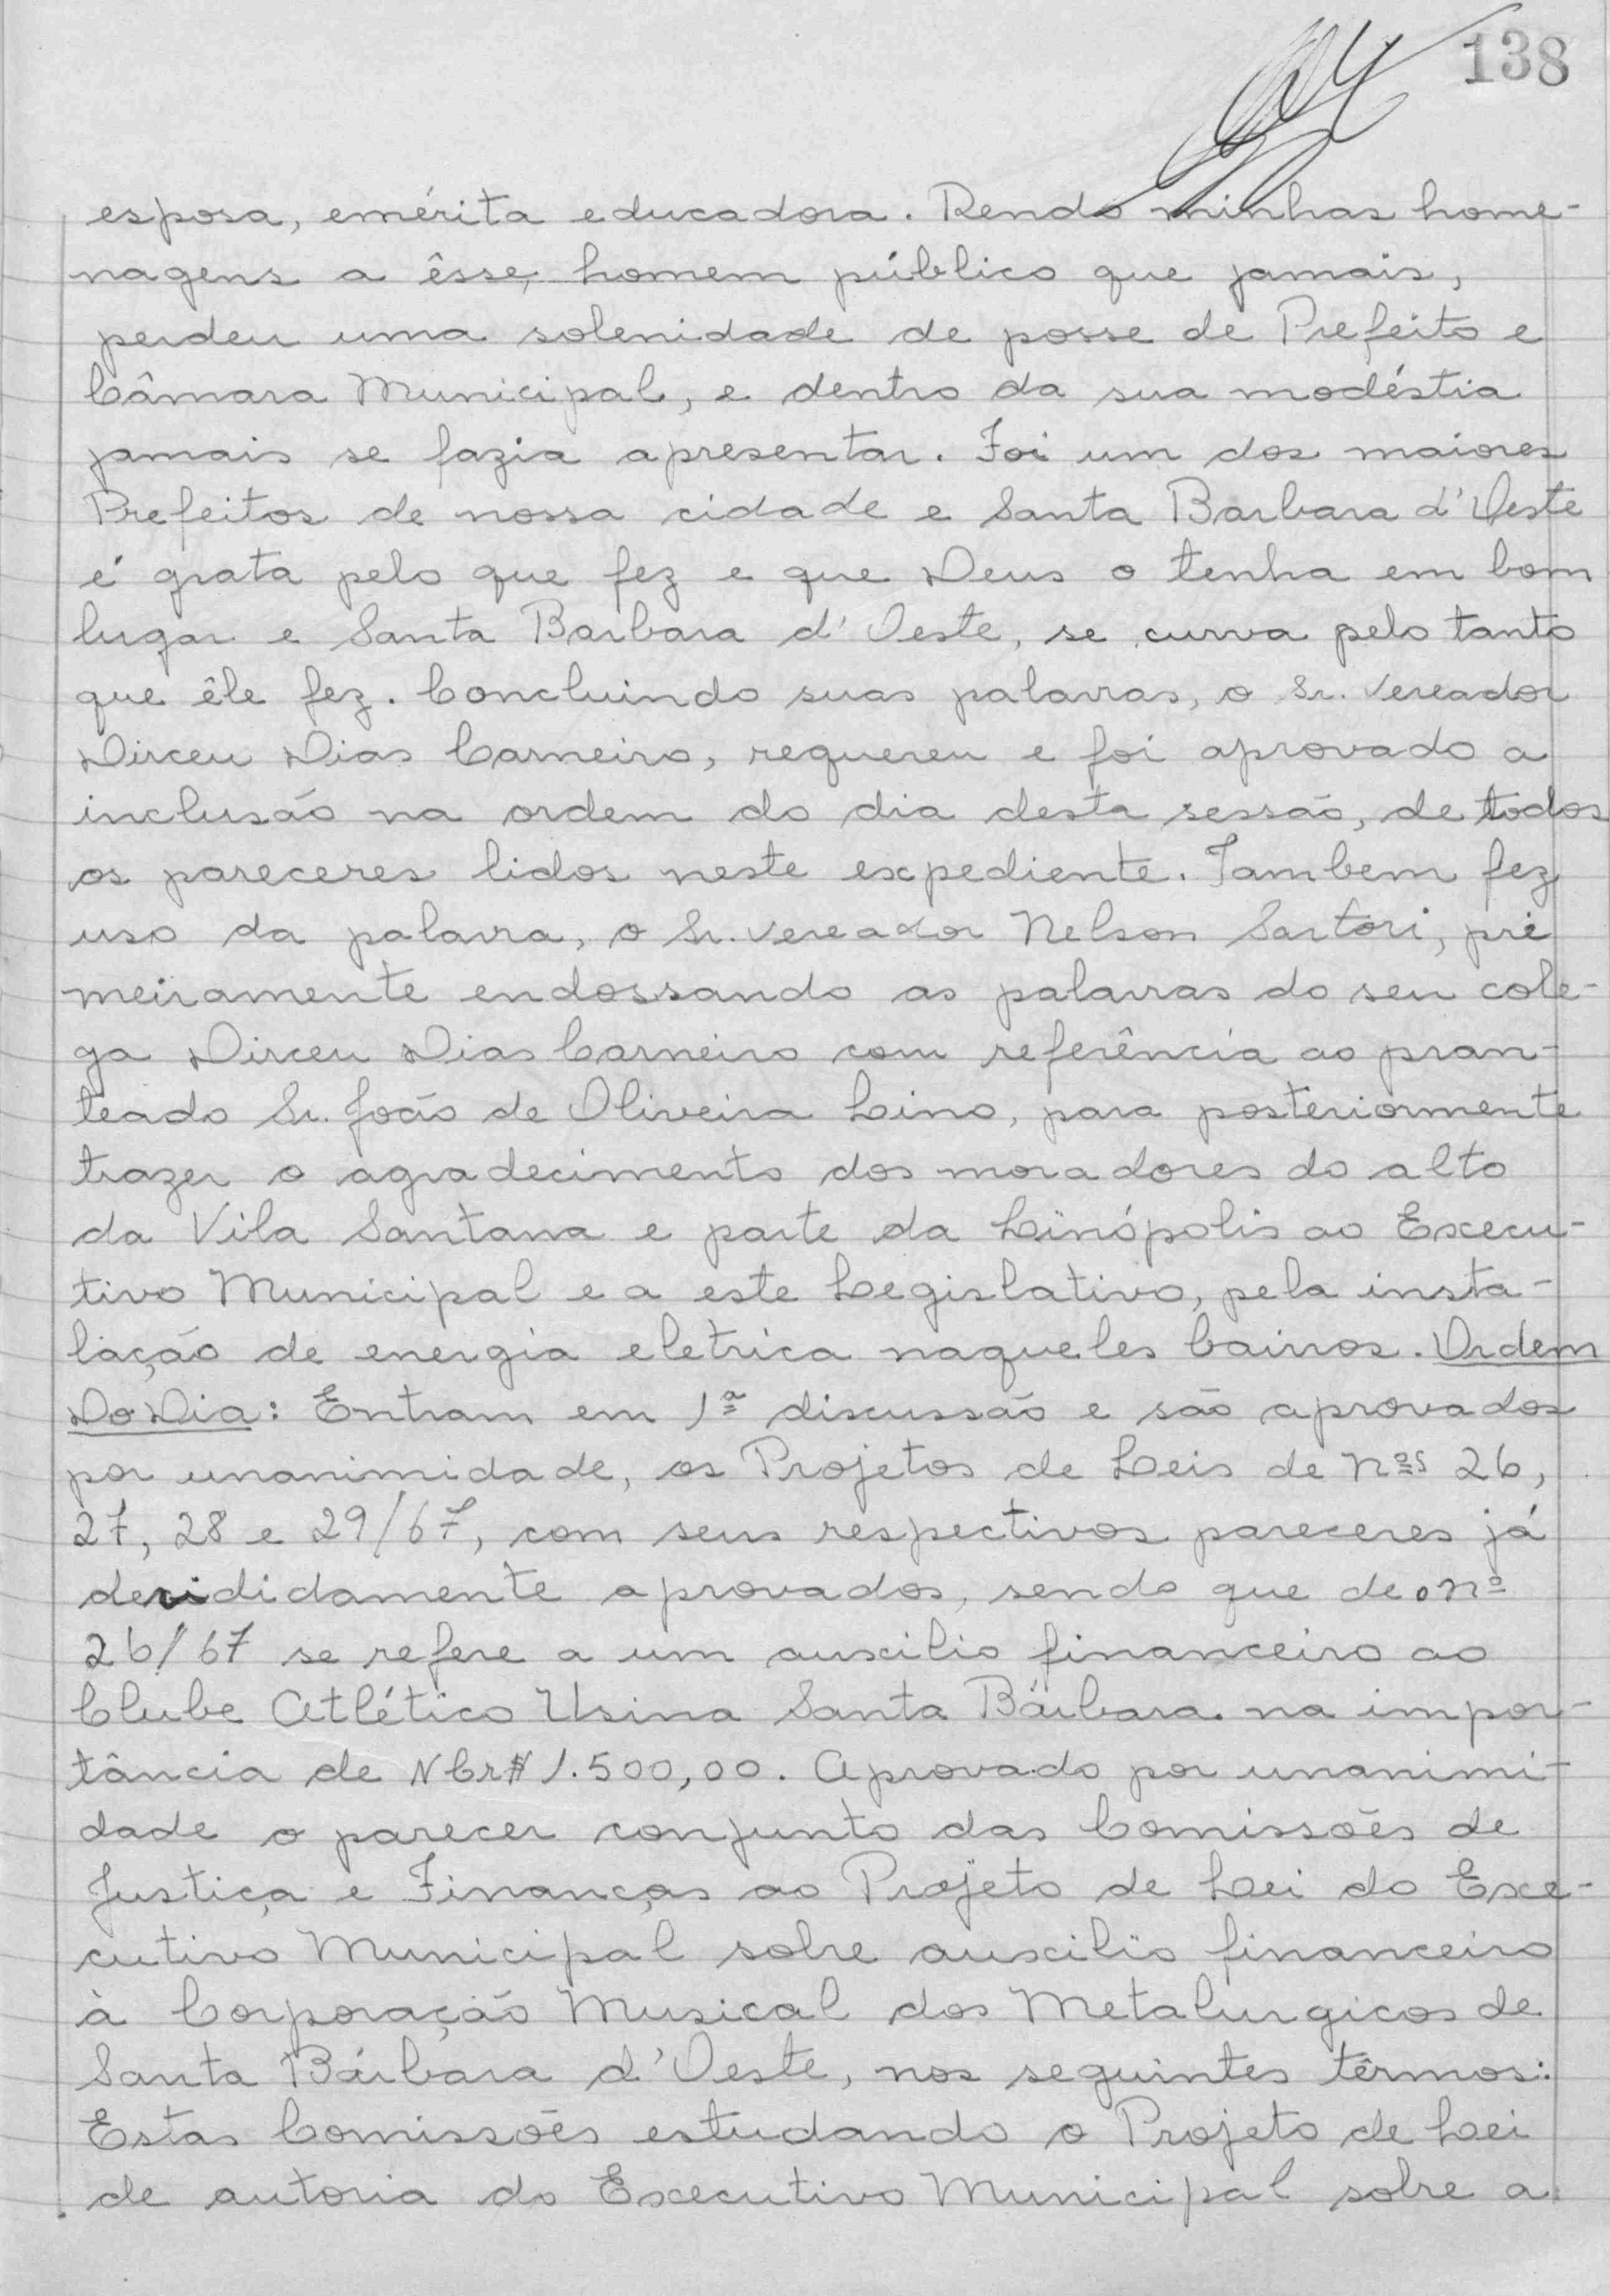 138
esposa, emérita educadora. Rendo minhas home-
nagens a êsse, homem público que jamais,
perdeu uma solenidade de posse de Prefeito e
Câmara Municipal, e dentro da sua modéstia
jamais se fazia apresentar. Foi um dos maiores
Prefeitos de nossa cidade e Santa Barbara d'Oeste
é grata pelo que fez e que Deus o tenha em bom
lugar e Santa Barbara d'Oeste, se curva pelo tanto
que êle fez. Concluindo suas palavras, o Sr. Vereador
Dirceu Dias Carneiro, requereu e foi aprovado a
inclusão na ordem do dia desta sessão, de todos
os pareceres lidos neste expediente. Tambem fez
uso da palavra, o Sr. Vereador Nelson Sartori, pri
meiramente endossando as palavras do seu cole-
ga Dirceu Dias Carneiro com referência ao pran-
teado Sr. João de Oliveira Lino, para posteriormente
trazer o agradecimento dos moradores do alto
da Vila Santana e parte da Linópolis ao Execu-
tivo Municipal e a este Legislativo, pela insta-
lação de energia eletrica naqueles bairros. Ordem
Do Dia: Entram em 1ª discussão e são aprovados
por unanimidade, os Projetos de Leis de Nºs 26,
27, 28 e 29/67, com seus respectivos pareceres já
decididamente aprovados, sendo que de o nº
26/67 se refere a um auxilio financeiro ao
Clube Atlético Usina Santa Bárbara. na impor-
tância de NCr$ 1.500,00. Aprovado por unanimi-
dade o parecer conjunto das Comissões de
Justiça e Finanças ao Projeto de Lei do Exe-
cutivo Municipal sobre auxilio financeiro
à Corporação Musical dos Metalurgicos de
Santa Bárbara d'Oeste, nos seguintes têrmos:
Estas Comissões estudando o Projeto de Lei
de autoria do Executivo Municipal sobre a